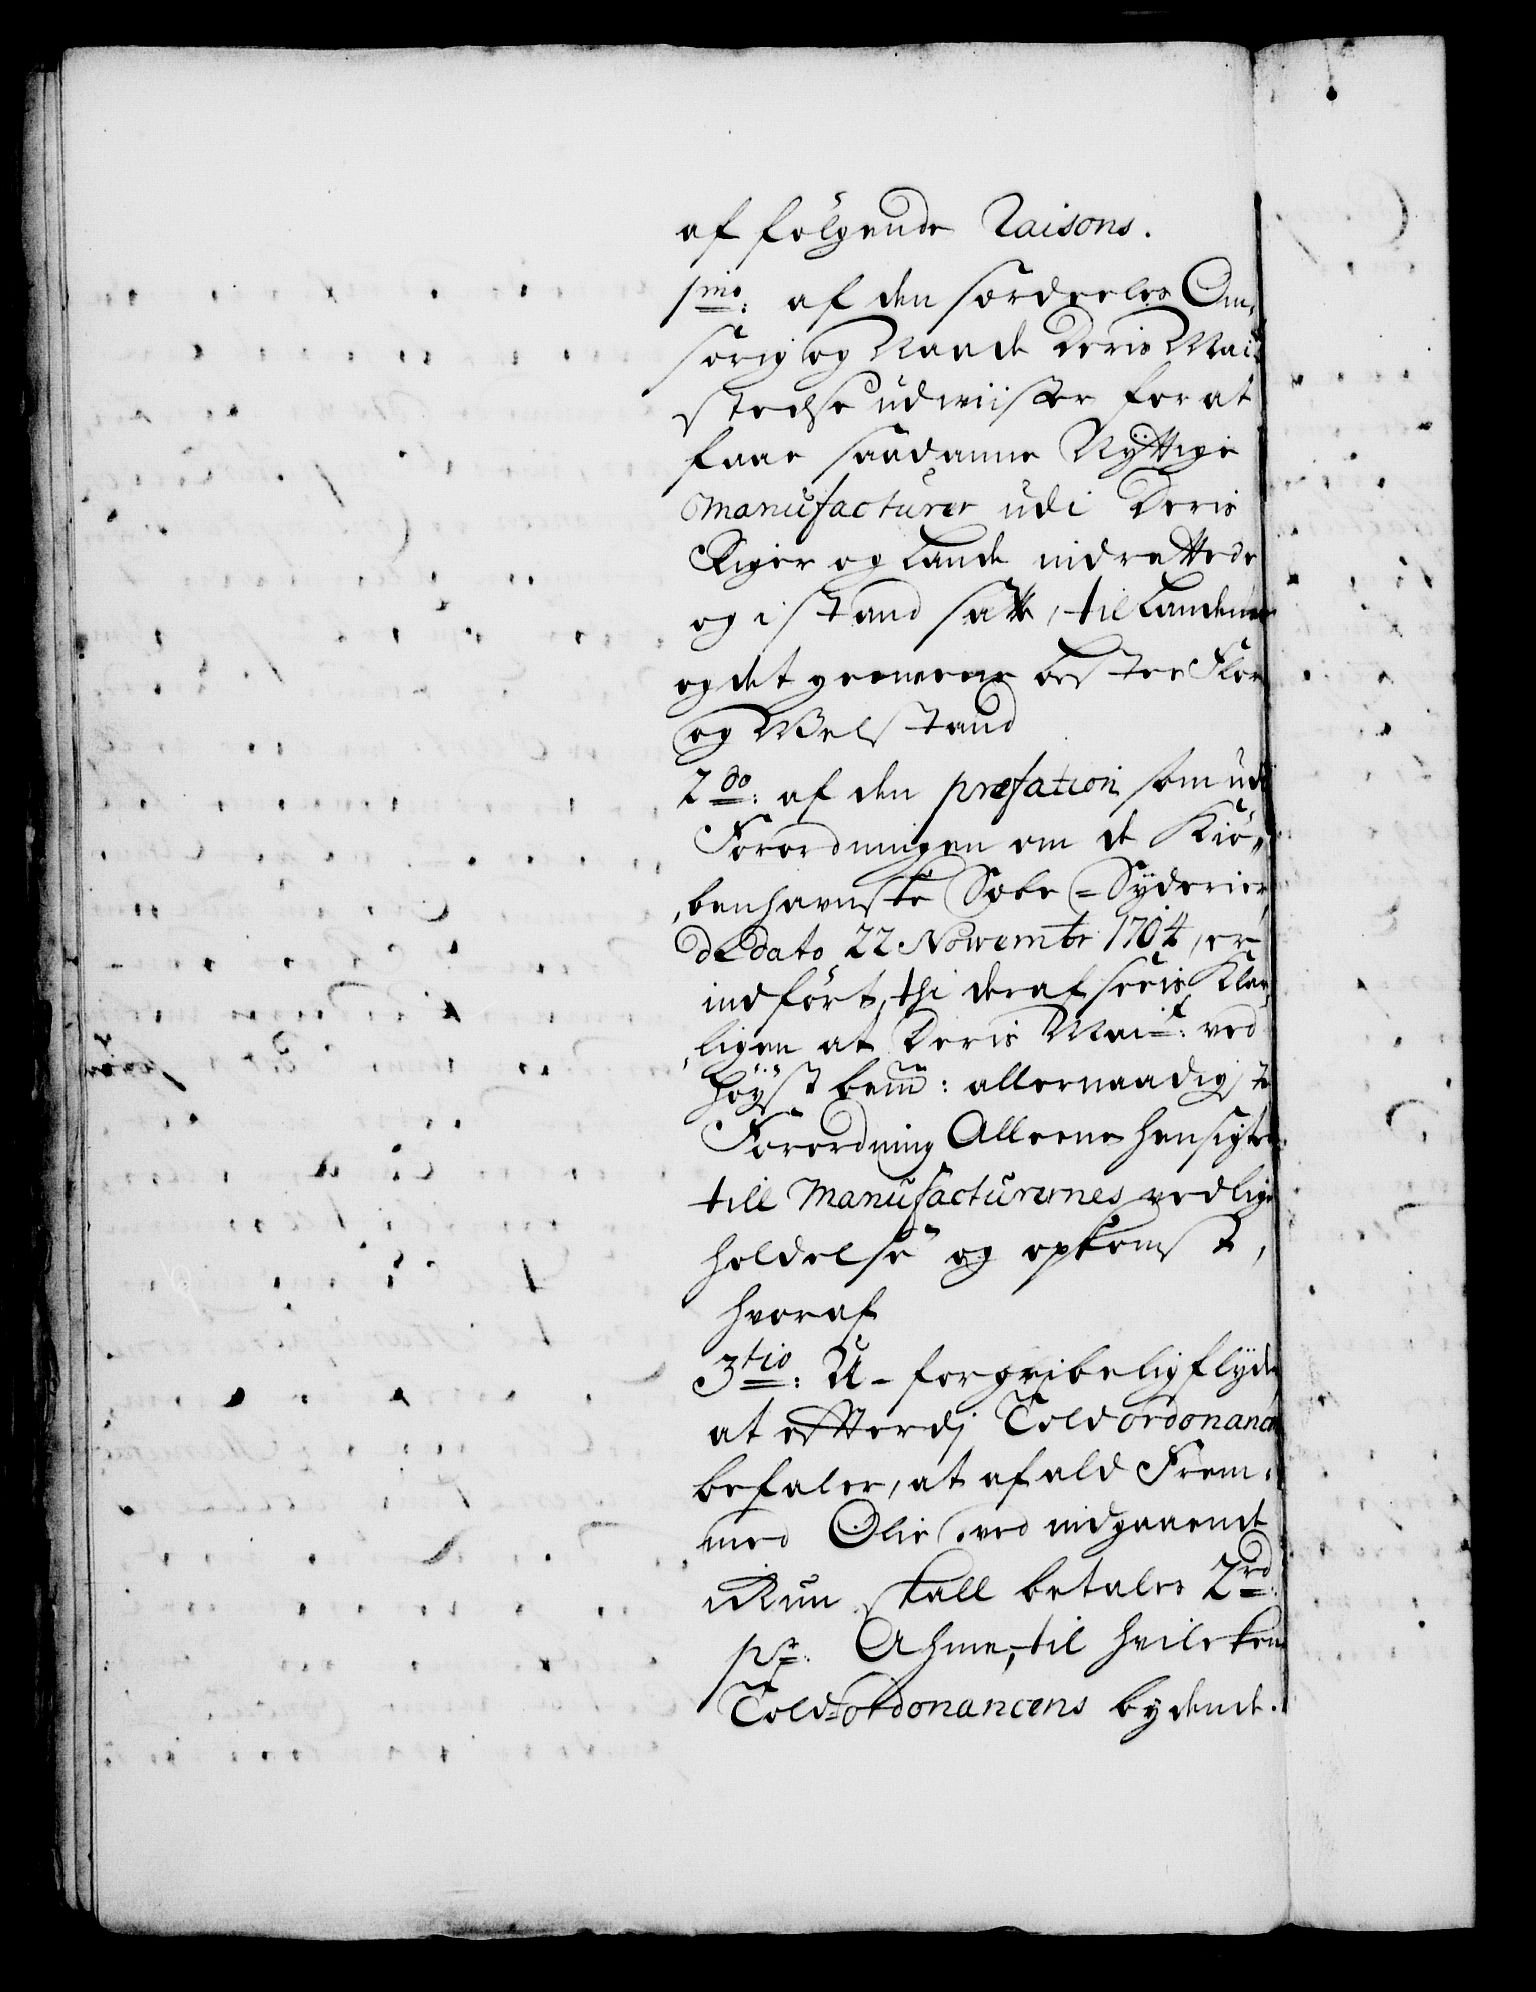 af følgende Raisons.
1mo: af den særdeeles Om¬
sorig og Naade Deris Mai
stedse udwiister for at
faae saadanne Nyttige
Manufacturer udi Deris
Riger og Lande indrettede
og i stand satt, til Landenes
og det gemeene bestes Flor
og Welstand
2do: af den præfation som udi
Forordningen om de Kiø¬
benhavnske Sæbe-Syderier,
de dato 22 Novembr 1704, er
indført, thi deraf seeis Klar¬
ligen at Deris Mait: ved
høyst bem: allernaadigste
Forordning Alleene hensigter
till Manufacturernes vedlige
holdelse og opkomst,
hvoraf
3tio: U-forgribelig flyder
at effterdj Told ordonancen
befaler, at af ald Frem¬
med Olie ved indgaaende
ikun skall betales 2rd:
pr: Ahme, til hvilcken
Told-ordonancens bydende